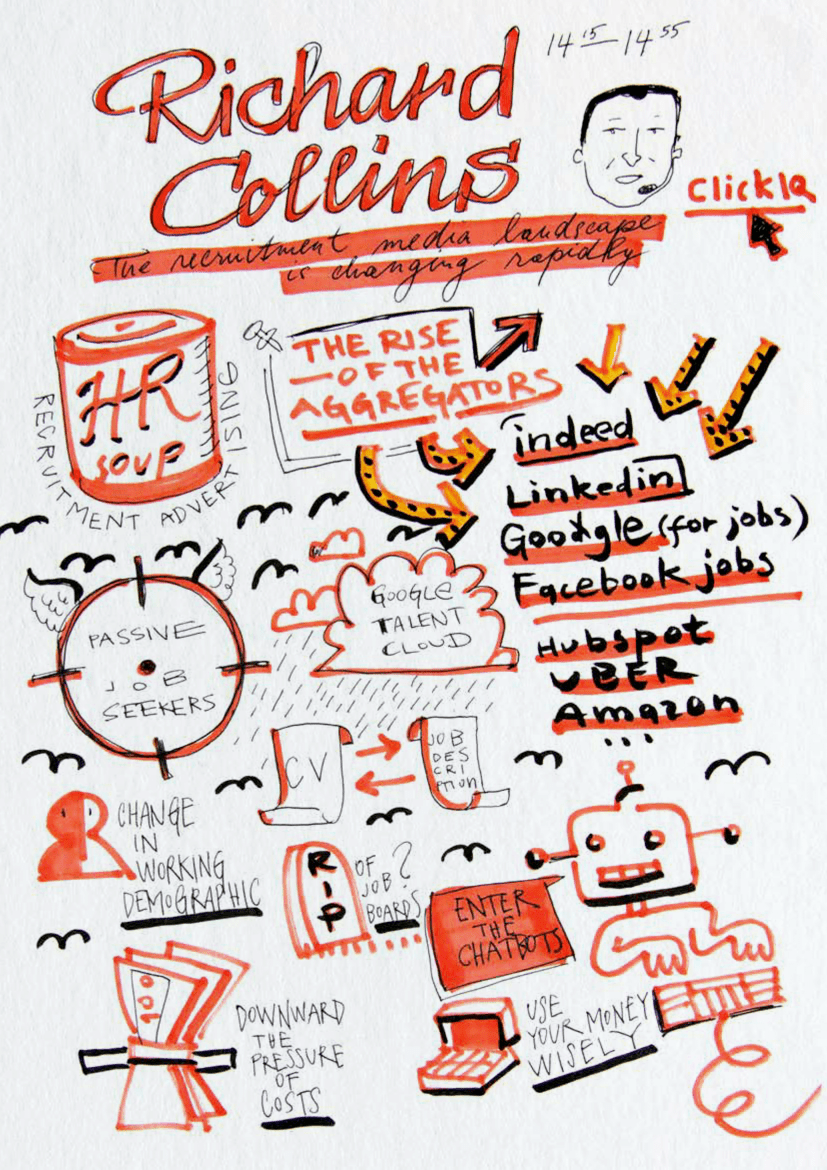 14 15 - 14 55
Richard
Collins
ClickIQ
The recruitment media landscape
is changing rapidly
HR
SOUP
RECRUITMENT ADVERTISING
THE RISE
- OF THE
AGGREGATORS
indeed
Linkedin
Google (for jobs)
Facebook jobs
Hubspot
UBER
Amazon
...
PASSIVE
JOB
SEEKERS
GOOGLE
TALENT
CLOUD
CV
JOB
DES
CRI
PTION
CHANGE
IN
WORKING
DEMOGRAPHIC
RIP
OF
JOB?
BOARDS
ENTER
THE
CHATBOTS
100
DOWNWARD
THE
PRESSURE
OF
COSTS
USE
YOUR MONEY
WISELY